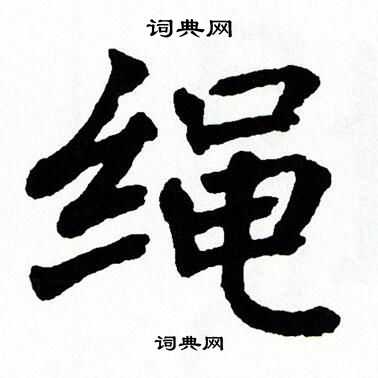 词典网
绳
词典网